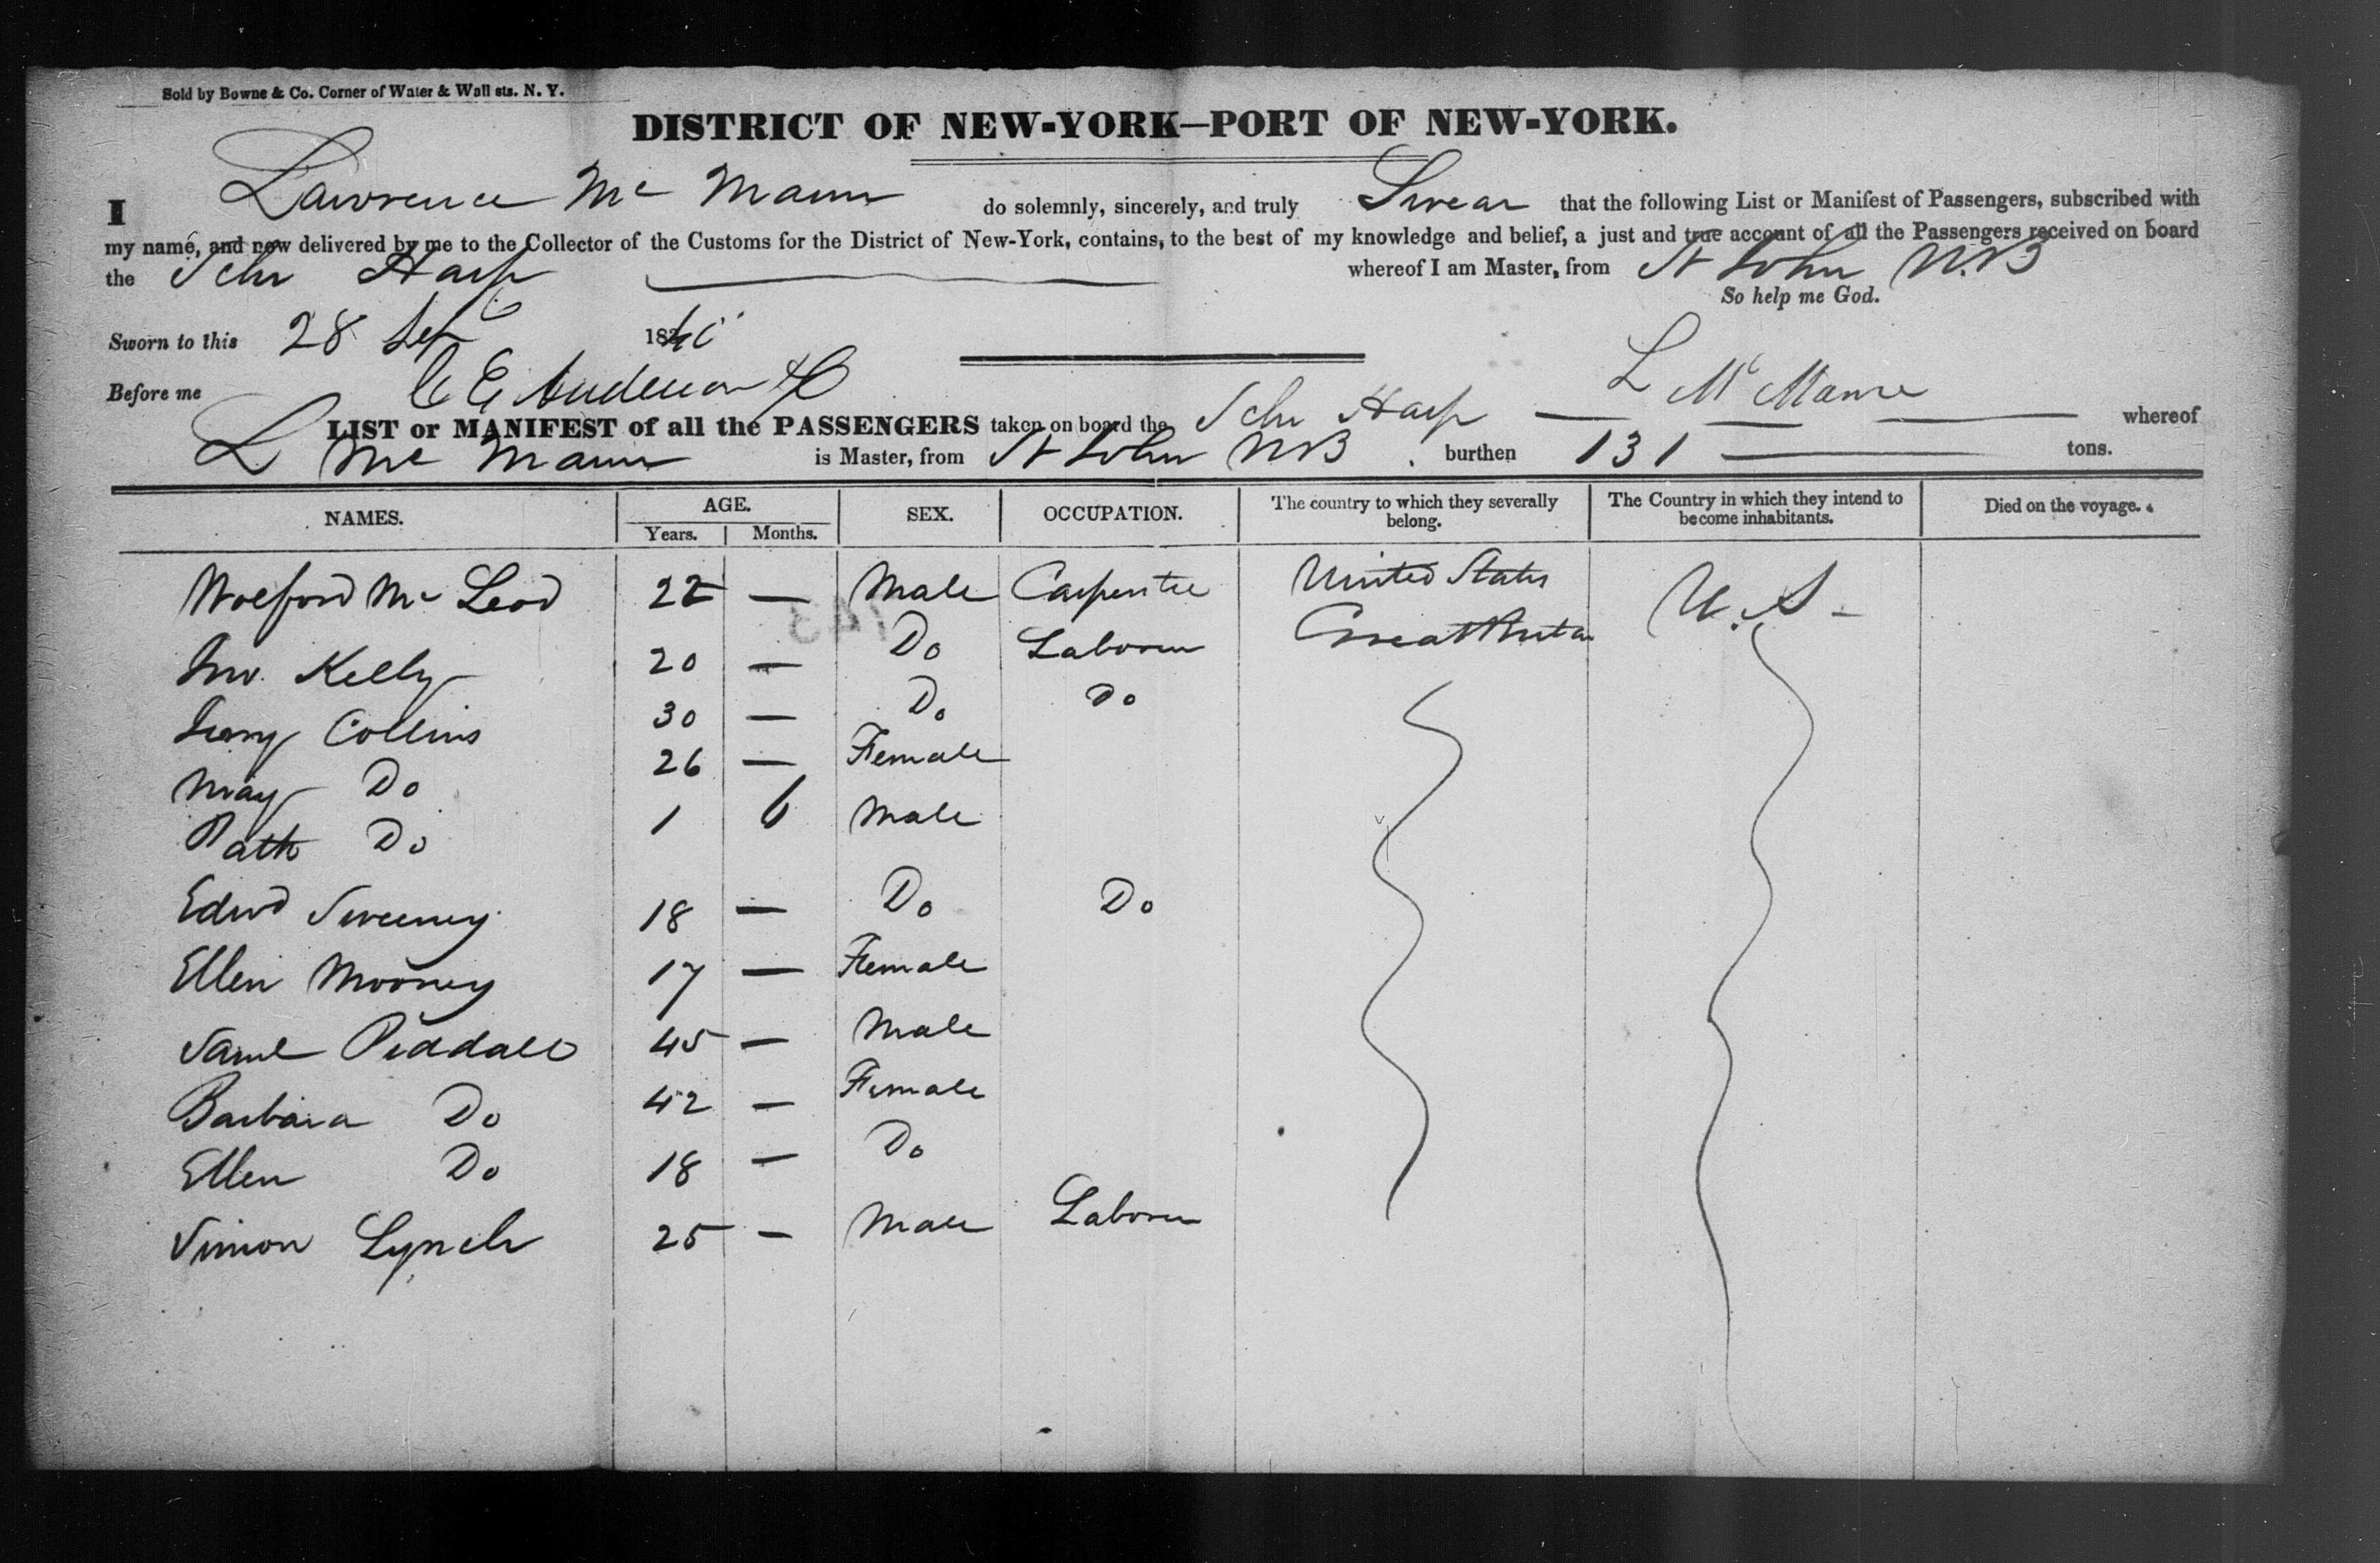 Sold by Bowne & Co. Corner of Water & Wall sts. N. Y.
DISTRICT OF NEW-YORK—PORT OF NEW-YORK.
I Lawrence Mc Mann do solemnly, sincerely, and truly Swear that the following List or Manifest of Passengers, subscribed with
my name, and now delivered by me to the Collector of the Customs for the District of New-York, contains, to the best of my knowledge and belief, a just and true account of all the Passengers received on board
the Schr Harp whereof I am Master, from St John N.B
So help me God.
Sworn to this 28 Sep 18
Before me C E Anderson L McManne
LIST or MANIFEST of all the PASSENGERS taken on board the Schr Harp whereof
L Mc Mann is Master, from St John NB . burthen 131 tons.
NAMES. AGE. SEX. OCCUPATION. The country to which they severally belong. The Country in which they intend to become inhabitants. Died on the voyage.
Years. Months.
Wolford Mc Leod 22 — Male Carpenter United States U.S-
Jno. Kelly 20 — Do Laborer Great Britain
Collins 30 — Do Do
May Do 26 — Female
Patk Do 1 6 Male
Edwd Sweeney 18 — Do Do
Ellen Mooney 17 — Female
Saml Piddall 45 — Male
Barbara Do 42 — Female
Ellen Do 18 — Do
Simon Lynch 25 — Male Laborer